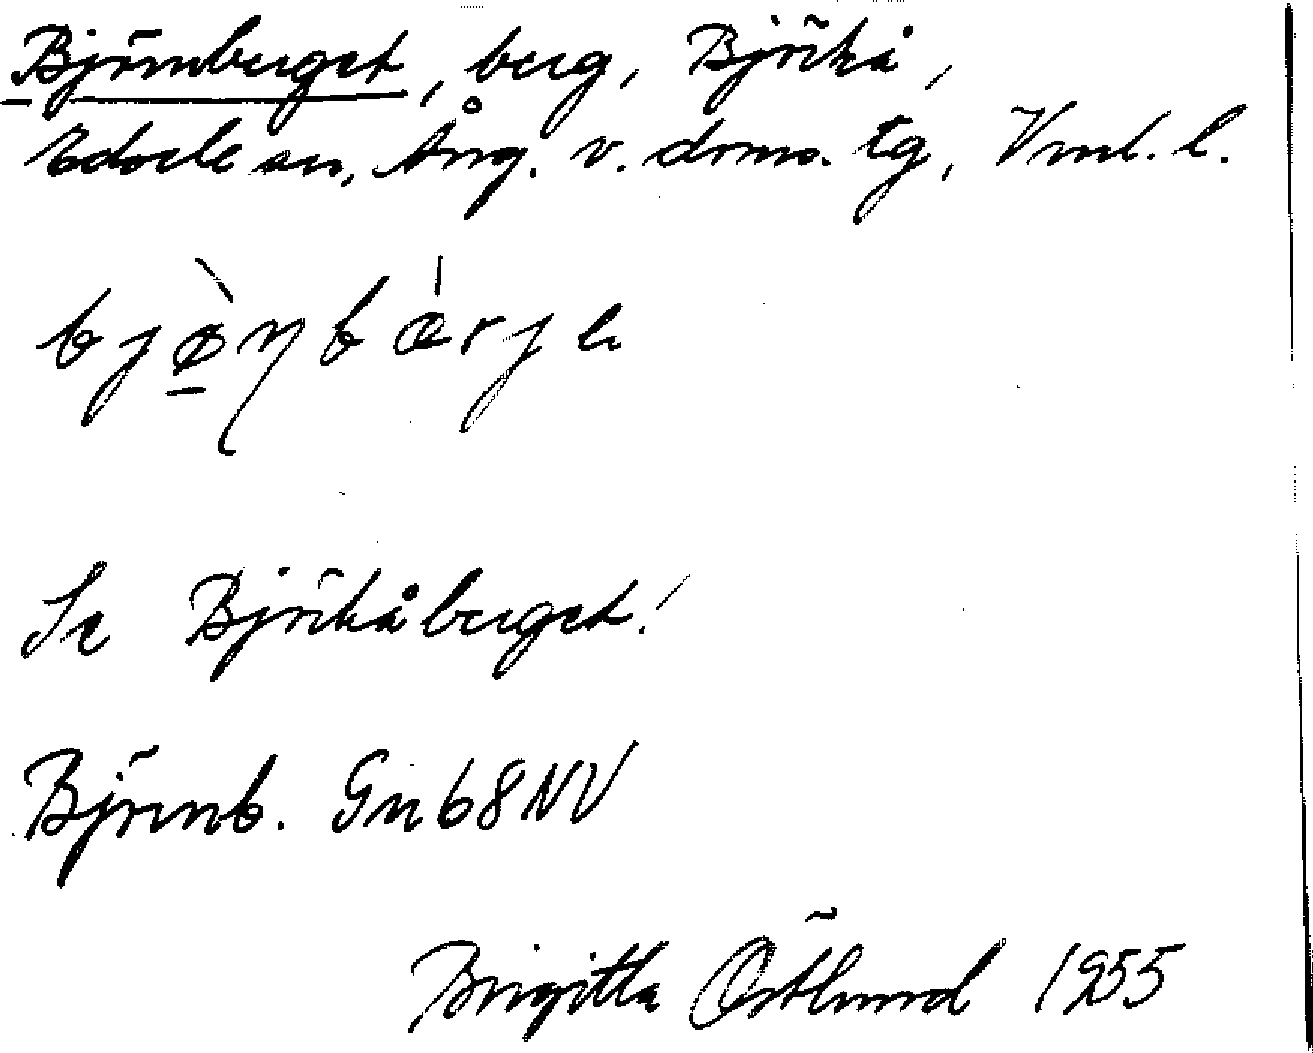 Björnberget, berg, Björkå,
Edsele sn, Ång. v. drms. tg, Vml. l.
bjø̀ɳbǽrjə
Se Björkåberget!
Björnb. Gn68NV
Birgitta Östlund 1955